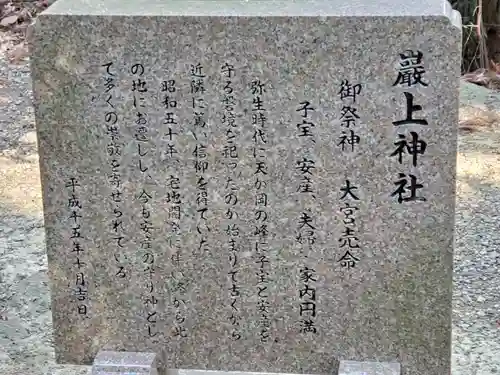 巖上神社
御祭神 大宮売命
子宝、安産、夫婦・家内円満
弥生時代に天が岡の峰に子宝と安産を
守る岩境を祀ったのが始まりで古くから
近隣に篤い信仰を得ていた
昭和五十年、宅地開発に伴い峰から此
の地にお遷しし、今も安産の守り神とし
て多くの崇敬を寄せられている
平成十五年十月吉日